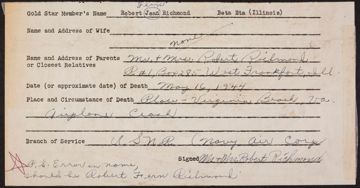 Fern
Gold Star Member's Name Robert Jean Richmond Beta Eta (Illinois)
Name and Address of Wife
none
Name and Address of Parents or Closest Relatives Mr. + Mrs. Robert Richmond
R.R.1, Box 285 - West Frankfort, Ill.
Date (or approximate date) of Death May 16, 1944
Place and Circumstance of Death Place - Virginia Beach, Va.
Airplane Crash
Branch of Service U.S.N.R. (Navy Air Corp
Signed Mr + Mrs Robert Richmond
P.S. Error in name,
should be Robert Fern Richmond